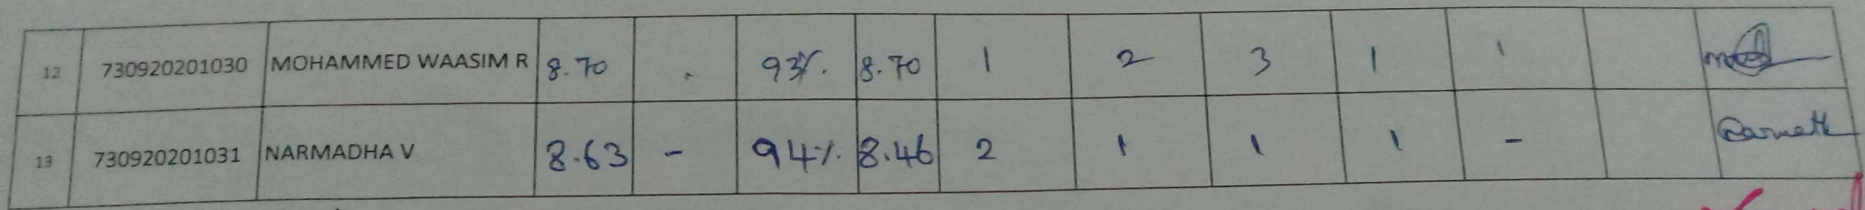 12 730920201030 MOHAMMED WAASIM R 8.70 . 93%. 8.70 1 2 3 1 1
13 730920201031 NARMADHA V 8.63 - 94%. 8.46 2 1 1 1 -